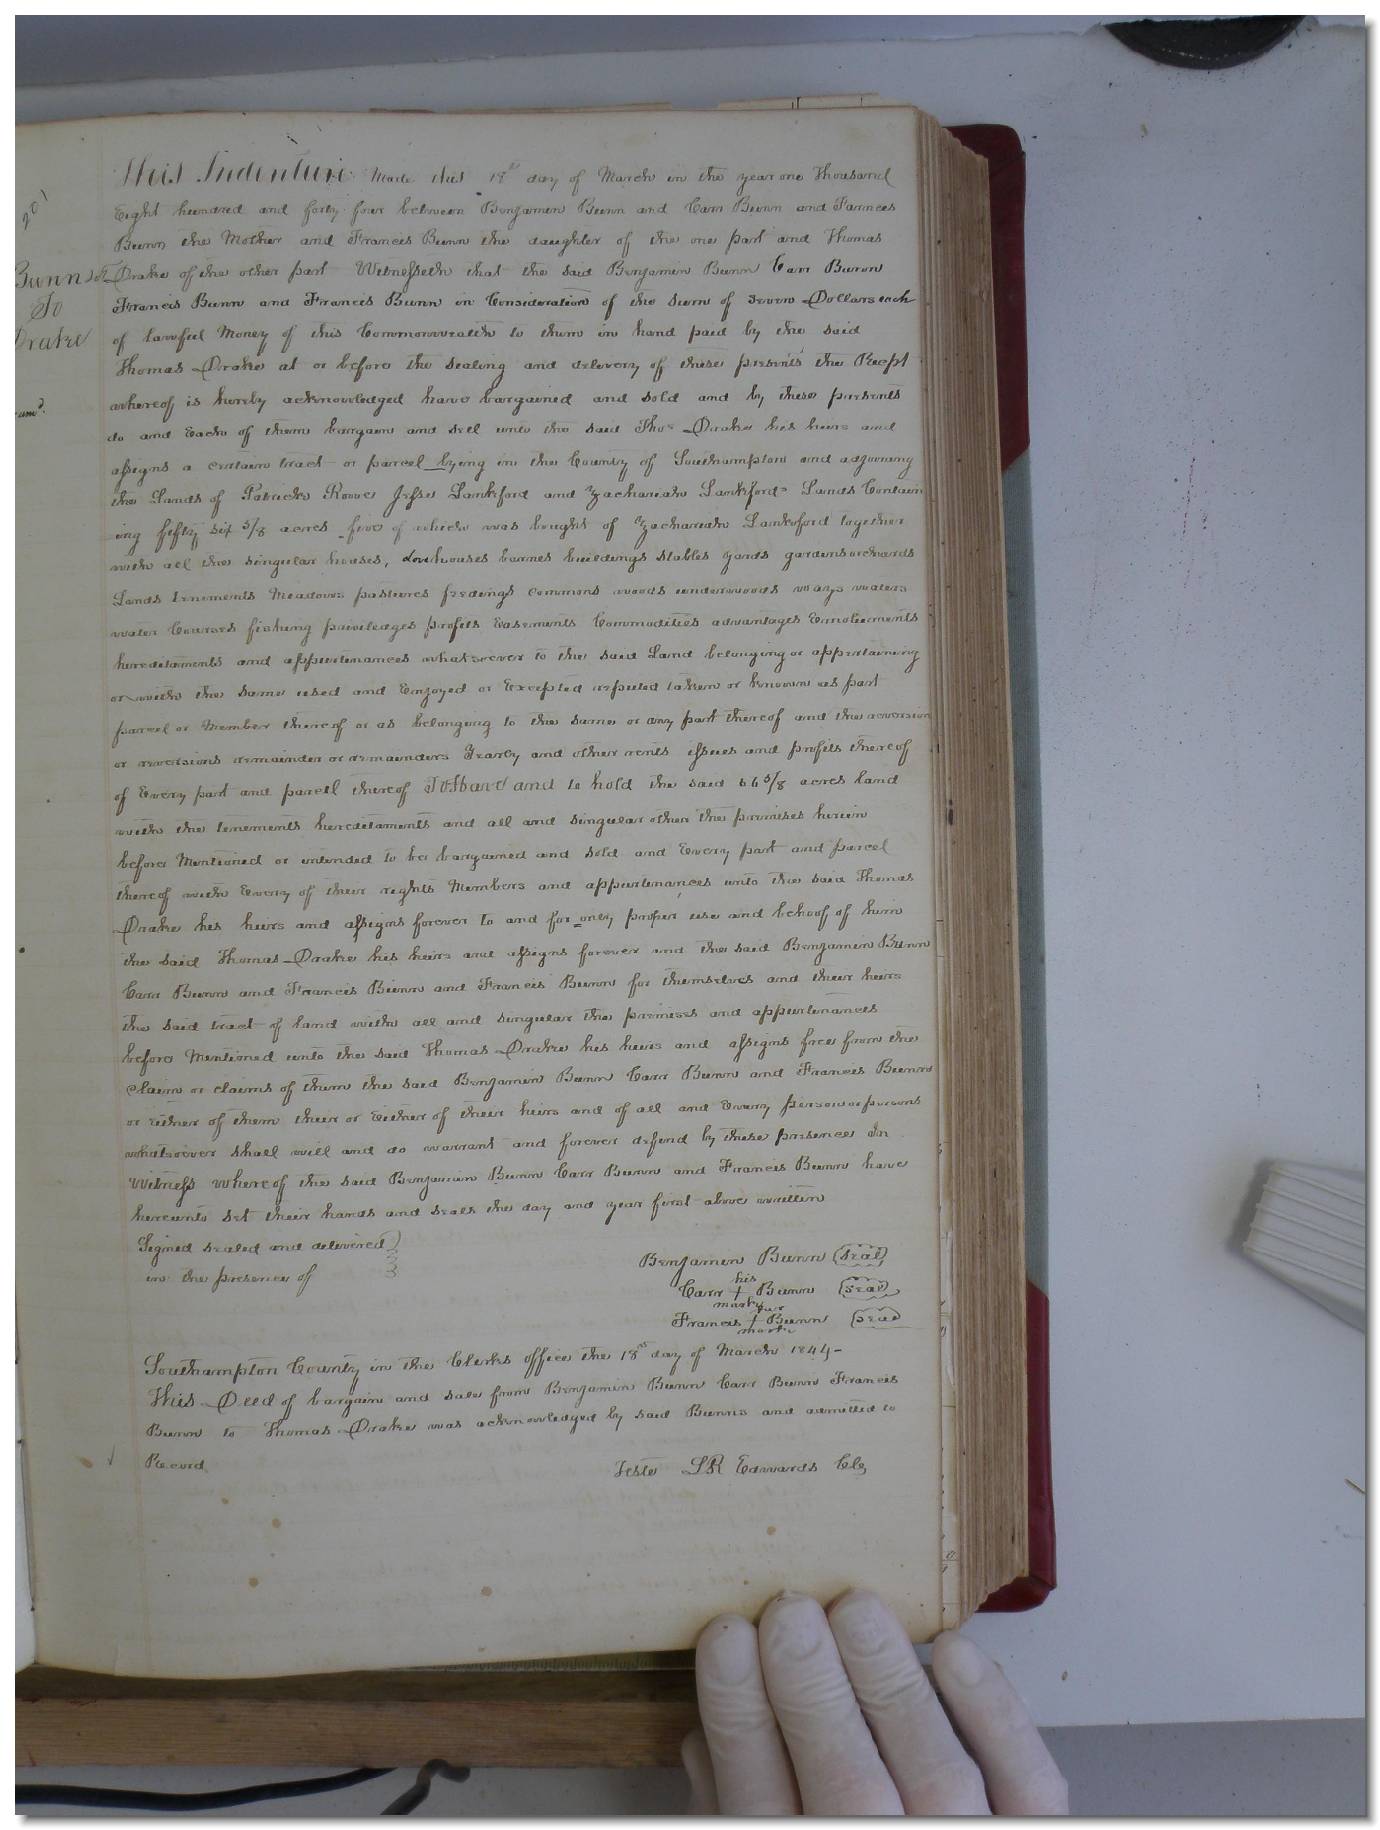 201
Bunn &c
To
Drake
This Indenture Made this 18th day of March in the year one Thousand
Eight hundred and forty four between Benjamin Bunn and Carr Bunn and Farnces
Bunn the Mother and Francis Bunn the daughter of the one part and Thomas
Drake of the other part Witnesseth that the said Benjamin Bunn Carr Bunn
Francis Bunn and Francis Bunn in Consideration of the sum of seven Dollars each
of lawful Money of this Commonwealth to them in hand paid by the said
Thomas Drake at or before the sealing and delivery of these presents the Recept
whereof is hereby acknowledged have bargained and sold and by these presents
do and Each of them bargain and sell unto the said Thos Drake his heirs and
assigns a certain tract or parcel lying in the County of Southampton and adjoining
the Lands of Patrick Roove Jesse Lankford and Zachariah Lankfords Lands Contain
ing fifty six 5/8 acres five of which was bought of Zachariah Lankford together
with all the singular houses, Outhouses barnes buildings stables yards gardens orchards
Lands tenements Meadows pastures feedings commons woods underwoods ways waters
water Courses fishing priviledges profits Easements Commodities advantages Emoluments
hereditaments and appurtenances whatsoever to the said Land belonging or appertaining
or with the same used and Enjoyed or Excepted reputed taken or known as part
parcel or Member thereof or as belonging to the same or any part thereof and the reversion
or reversions remainder or remainders Yearly and other rents issues and profits thereof
of Every part and parcell thereof To Have and to hold the said 56 5/8 acres land
with the tenements hereditaments and all and singular other the premises herein
before Mentioned or intended to be bargained and sold and Every part and parcel
thereof with Every of their rights Members and appurtenances unto the said Thomas
Drake his heirs and assigns forever to and for only proper use and behoof of him
the said Thomas Drake his heirs and assigns forever and the said Benjamin Bunn
Carr Bunn and Francis Bunn and Francis Bunn for themselves and their heirs
the said tract of land with all and singular the premises and appurtenances
before Mentioned unto the said Thomas Drake his heirs and assigns free from the
claim or claims of them the said Benjamin Bunn Carr Bunn and Frances Bunn
or either of them their or Either of their heirs and of all and Every person or persons
whatsoever shall will and do warrant and forever defend by these presence In
Witness whereof the said Benjamin Bunn Carr Bunn and Francis Bunn have
hereunto set their hands and seals the day and year first above written
Signed sealed and delivered
in the presence of
Benjamin Bunn seal
his
Carr + Bunn seal
mark
her
Francis + Bunn seal
mark
Southampton County in the Clerks office the 18th day of March 1844-
This Deed of bargain and sale from Benjamin Bunn Carr Bunn Francis
Bunn to Thomas Drake was acknowledged by said Bunns and admitted to
Record
Teste LR Edwards Clk